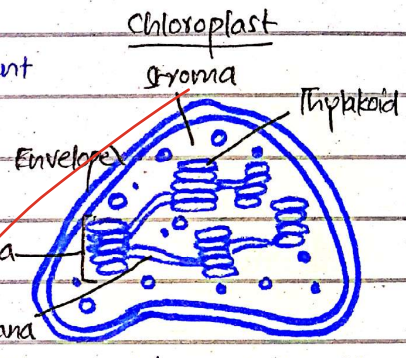 Chloroplast
stroma
Thylakoid
Envelope